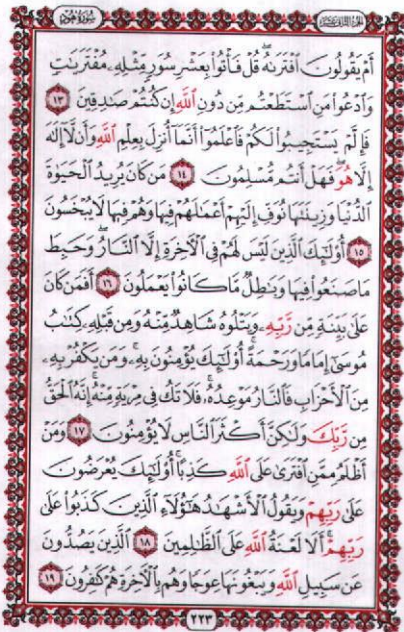 سُورَةُ هُودٍ
الجزء الثاني عشر
أَمْ يَقُولُونَ ٱفْتَرَىٰهُ قُلْ فَأْتُوا۟ بِعَشْرِ سُوَرٍ مِّثْلِهِۦ مُفْتَرَيَٰتٍ
وَٱدْعُوا۟ مَنِ ٱسْتَطَعْتُم مِّن دُونِ ٱللَّهِ إِن كُنتُمْ صَٰدِقِينَ ١٣
فَإِلَّمْ يَسْتَجِيبُوا۟ لَكُمْ فَٱعْلَمُوٓا۟ أَنَّمَآ أُنزِلَ بِعِلْمِ ٱللَّهِ وَأَن لَّآ إِلَٰهَ
إِلَّا هُوَ فَهَلْ أَنتُم مُّسْلِمُونَ ١٤ مَن كَانَ يُرِيدُ ٱلْحَيَوٰةَ
ٱلدُّنْيَا وَزِينَتَهَا نُوَفِّ إِلَيْهِمْ أَعْمَٰلَهُمْ فِيهَا وَهُمْ فِيهَا لَا يُبْخَسُونَ
١٥ أُو۟لَٰٓئِكَ ٱلَّذِينَ لَيْسَ لَهُمْ فِى ٱلْءَاخِرَةِ إِلَّا ٱلنَّارُ وَحَبِطَ
مَا صَنَعُوا۟ فِيهَا وَبَٰطِلٌ مَّا كَانُوا۟ يَعْمَلُونَ ١٦ أَفَمَن كَانَ
عَلَىٰ بَيِّنَةٍ مِّن رَّبِّهِۦ وَيَتْلُوهُ شَاهِدٌ مِّنْهُ وَمِن قَبْلِهِۦ كِتَٰبُ
مُوسَىٰٓ إِمَامًا وَرَحْمَةً أُو۟لَٰٓئِكَ يُؤْمِنُونَ بِهِۦ وَمَن يَكْفُرْ بِهِۦ
مِنَ ٱلْأَحْزَابِ فَٱلنَّارُ مَوْعِدُهُۥ فَلَا تَكُ فِى مِرْيَةٍ مِّنْهُ إِنَّهُ ٱلْحَقُّ
مِن رَّبِّكَ وَلَٰكِنَّ أَكْثَرَ ٱلنَّاسِ لَا يُؤْمِنُونَ ١٧ وَمَنْ
أَظْلَمُ مِمَّنِ ٱفْتَرَىٰ عَلَى ٱللَّهِ كَذِبًا أُو۟لَٰٓئِكَ يُعْرَضُونَ
عَلَىٰ رَبِّهِمْ وَيَقُولُ ٱلْأَشْهَٰدُ هَٰٓؤُلَآءِ ٱلَّذِينَ كَذَبُوا۟ عَلَىٰ
رَبِّهِمْ أَلَا لَعْنَةُ ٱللَّهِ عَلَى ٱلظَّٰلِمِينَ ١٨ ٱلَّذِينَ يَصُدُّونَ
عَن سَبِيلِ ٱللَّهِ وَيَبْغُونَهَا عِوَجًا وَهُم بِٱلْءَاخِرَةِ هُمْ كَٰفِرُونَ ١٩
٢٢٣